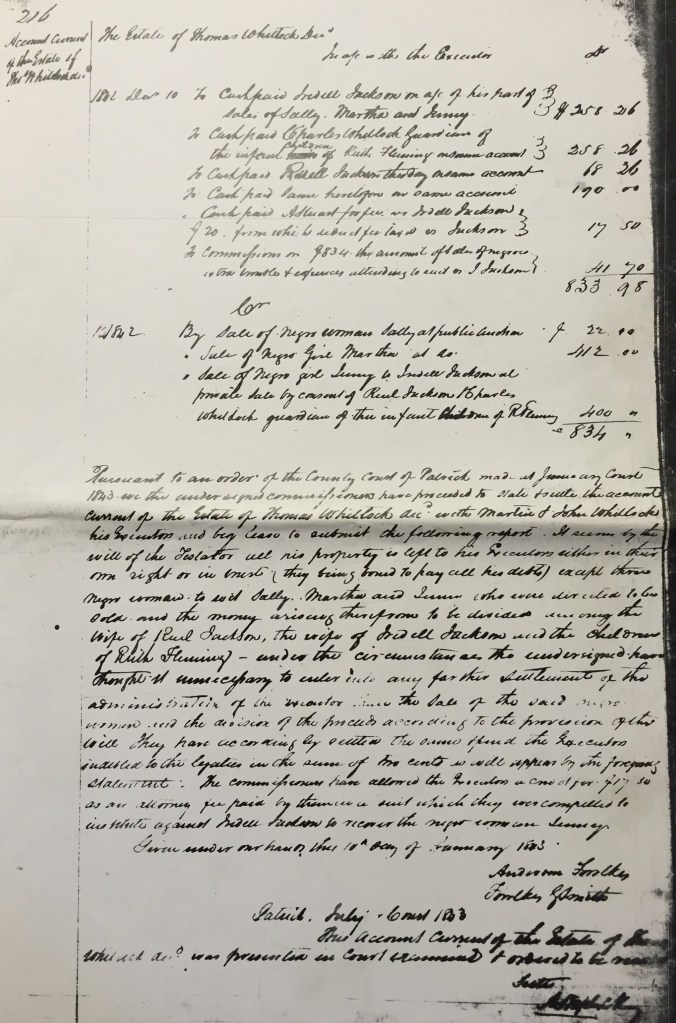 216
Account Current
of the Estate of
Thos Whitlock decd
The Estate of Thomas Whitlock Decd
In a/c with the Executor Dr
1842 Decr 10 To Cash paid Iredell Jackson on a/c of his part of
sales of Sally, Martha and Jenny $258 26
To Cash paid Charles Whitlock Guardian of
the infant children of Ruth Fleming on same account 258.26
To Cash paid Reuel Jackson this day on same account 68 26
To Cash paid same heretofore on same account 190.00
" Cash paid A Stuart for fee vs Iredell Jackson
$20. from which deduct fee taxed vs Jackson 17 50
To Commissions on $834. the amount of sales of negroes
extra trouble & expences attending to suit vs I Jackson 41 70
833 98
Cr
1842 By Sale of Negro woman Sally at public Auction $ 22.00
" Sale of Negro Girl Martha at do. 412.00
" Sale of Negro girl Jenny to Iredell Jackson at
private sale by consent of Reul Jackson & Charles
Whitlock guardian of the infant Children of R Fleming 400 "
834 "
Pursuant to an order of the County Court of Patrick made at January Court
1843 we the undersigned commissioners have proceeded to state & settle the account
current of the Estate of Thomas Whitlock decd with Martin & John Whitlock
his Executors and beg leave to submit the following report. It seems by the
will of the Testator all his property is left to his Executors either in their
own right or in trust (they being bound to pay all his debts) except three
Negro woman to wit Sally, Martha and Jenny who were directed to be
sold and the money arising therefrom to be divided among the
wife of Reul Jackson, the wife of Iredell Jackson and the children
of Ruth Fleming) - under the circumstances the undersigned have
thought it unnecessary to enter into any farther settlement of the
administration of the executor than the sale of the said negro
women and the division of the proceeds according to the provision of the
will They have according by settled the same & find the Executors
indebted to the legatees in the sum of two cents as will appear by the foregoing
statement. The commissioners have allowed the Executors a credit for $17 50
as an attorney fee paid by them in a suit which they were compelled to
institute against Iredell Jackson to recover the negro woman Jenny.
Given under our hands this 10th day of January 1843
Anderson Foulkes
Foulkes G Smith
Patrick July Court 1843
This Account Current of the Estate of Thomas
Whitlock decd was presented in Court examined & ordered to be
Teste